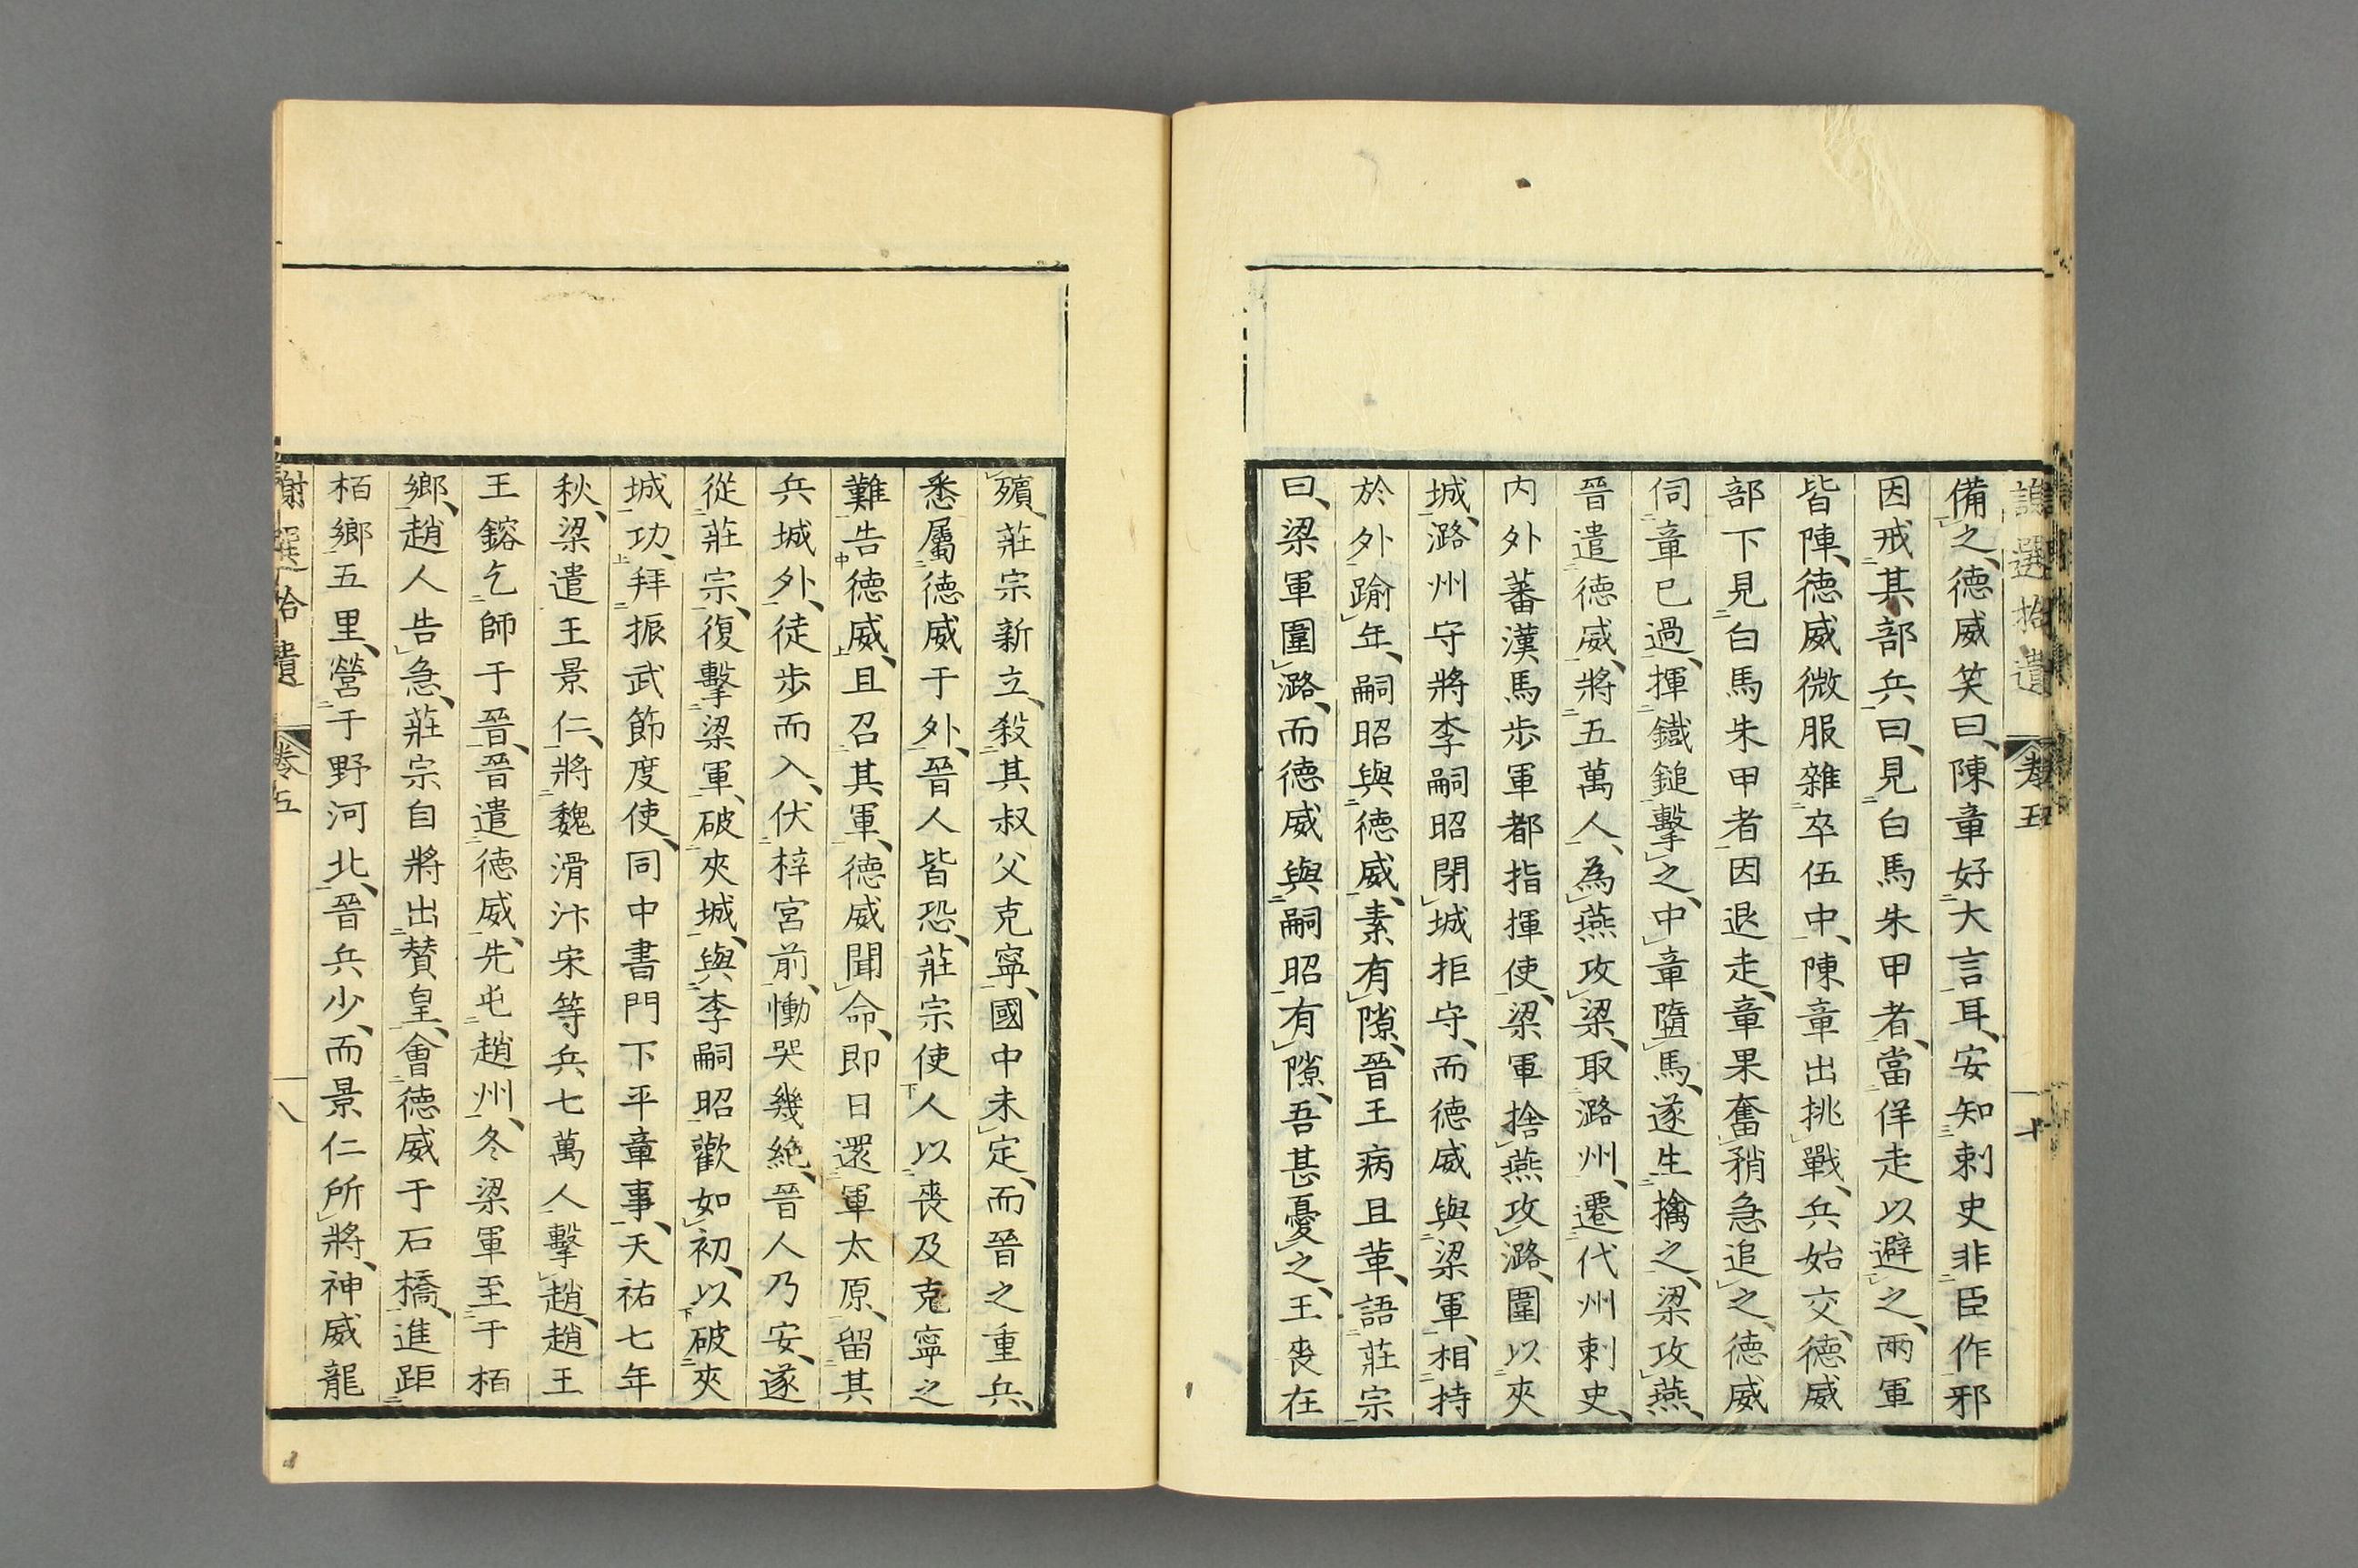 謝選拾遺 卷五 十
備之、德威笑曰、陳章好大言耳、安知刺史非臣作邪
因戒其部兵曰、見白馬朱甲者、當佯走以避之、兩軍
皆陣、德威微服雜卒伍中、陳章出挑戰、兵始交、德威
部下見白馬朱甲者、因退走、章果奮矟急追之、德威
伺章已過、揮鐵鎚擊之、中章墮馬、遂生擒之、梁攻燕、
晉遣德威、將五萬人、為燕攻梁、取潞州、遷代州刺史、
內外蕃漢馬步軍都指揮使、梁軍捨燕攻潞、圍以夾
城、潞州守將李嗣昭閉城拒守、而德威與梁軍、相持
於外踰年、嗣昭與德威、素有隙、晉王病且革、語莊宗
曰、梁軍圍潞、而德威與嗣昭有隙、吾甚憂之、王喪在
殯、莊宗新立、殺其叔父克寧、國中未定、而晉之重兵、
悉屬德威于外、晉人皆恐、莊宗使人以喪及克寧之
難告德威、且召其軍、德威聞命、即日還軍太原、留其
兵城外、徒步而入、伏梓宮前、慟哭幾絕、晉人乃安、遂
從莊宗、復擊梁軍、破夾城、與李嗣昭歡如初、以破夾
城功、拜振武節度使、同中書門下平章事、天祐七年
秋、梁遣王景仁、將魏滑汴宋等兵七萬人擊趙、趙王
王鎔乞師于晉、晉遣德威、先屯趙州、冬梁軍至于栢
鄉、趙人告急、莊宗自將出贊皇、會德威于石橋、進距
栢鄉五里、營于野河北、晉兵少、而景仁所將、神威龍
謝選拾遺 卷五 八